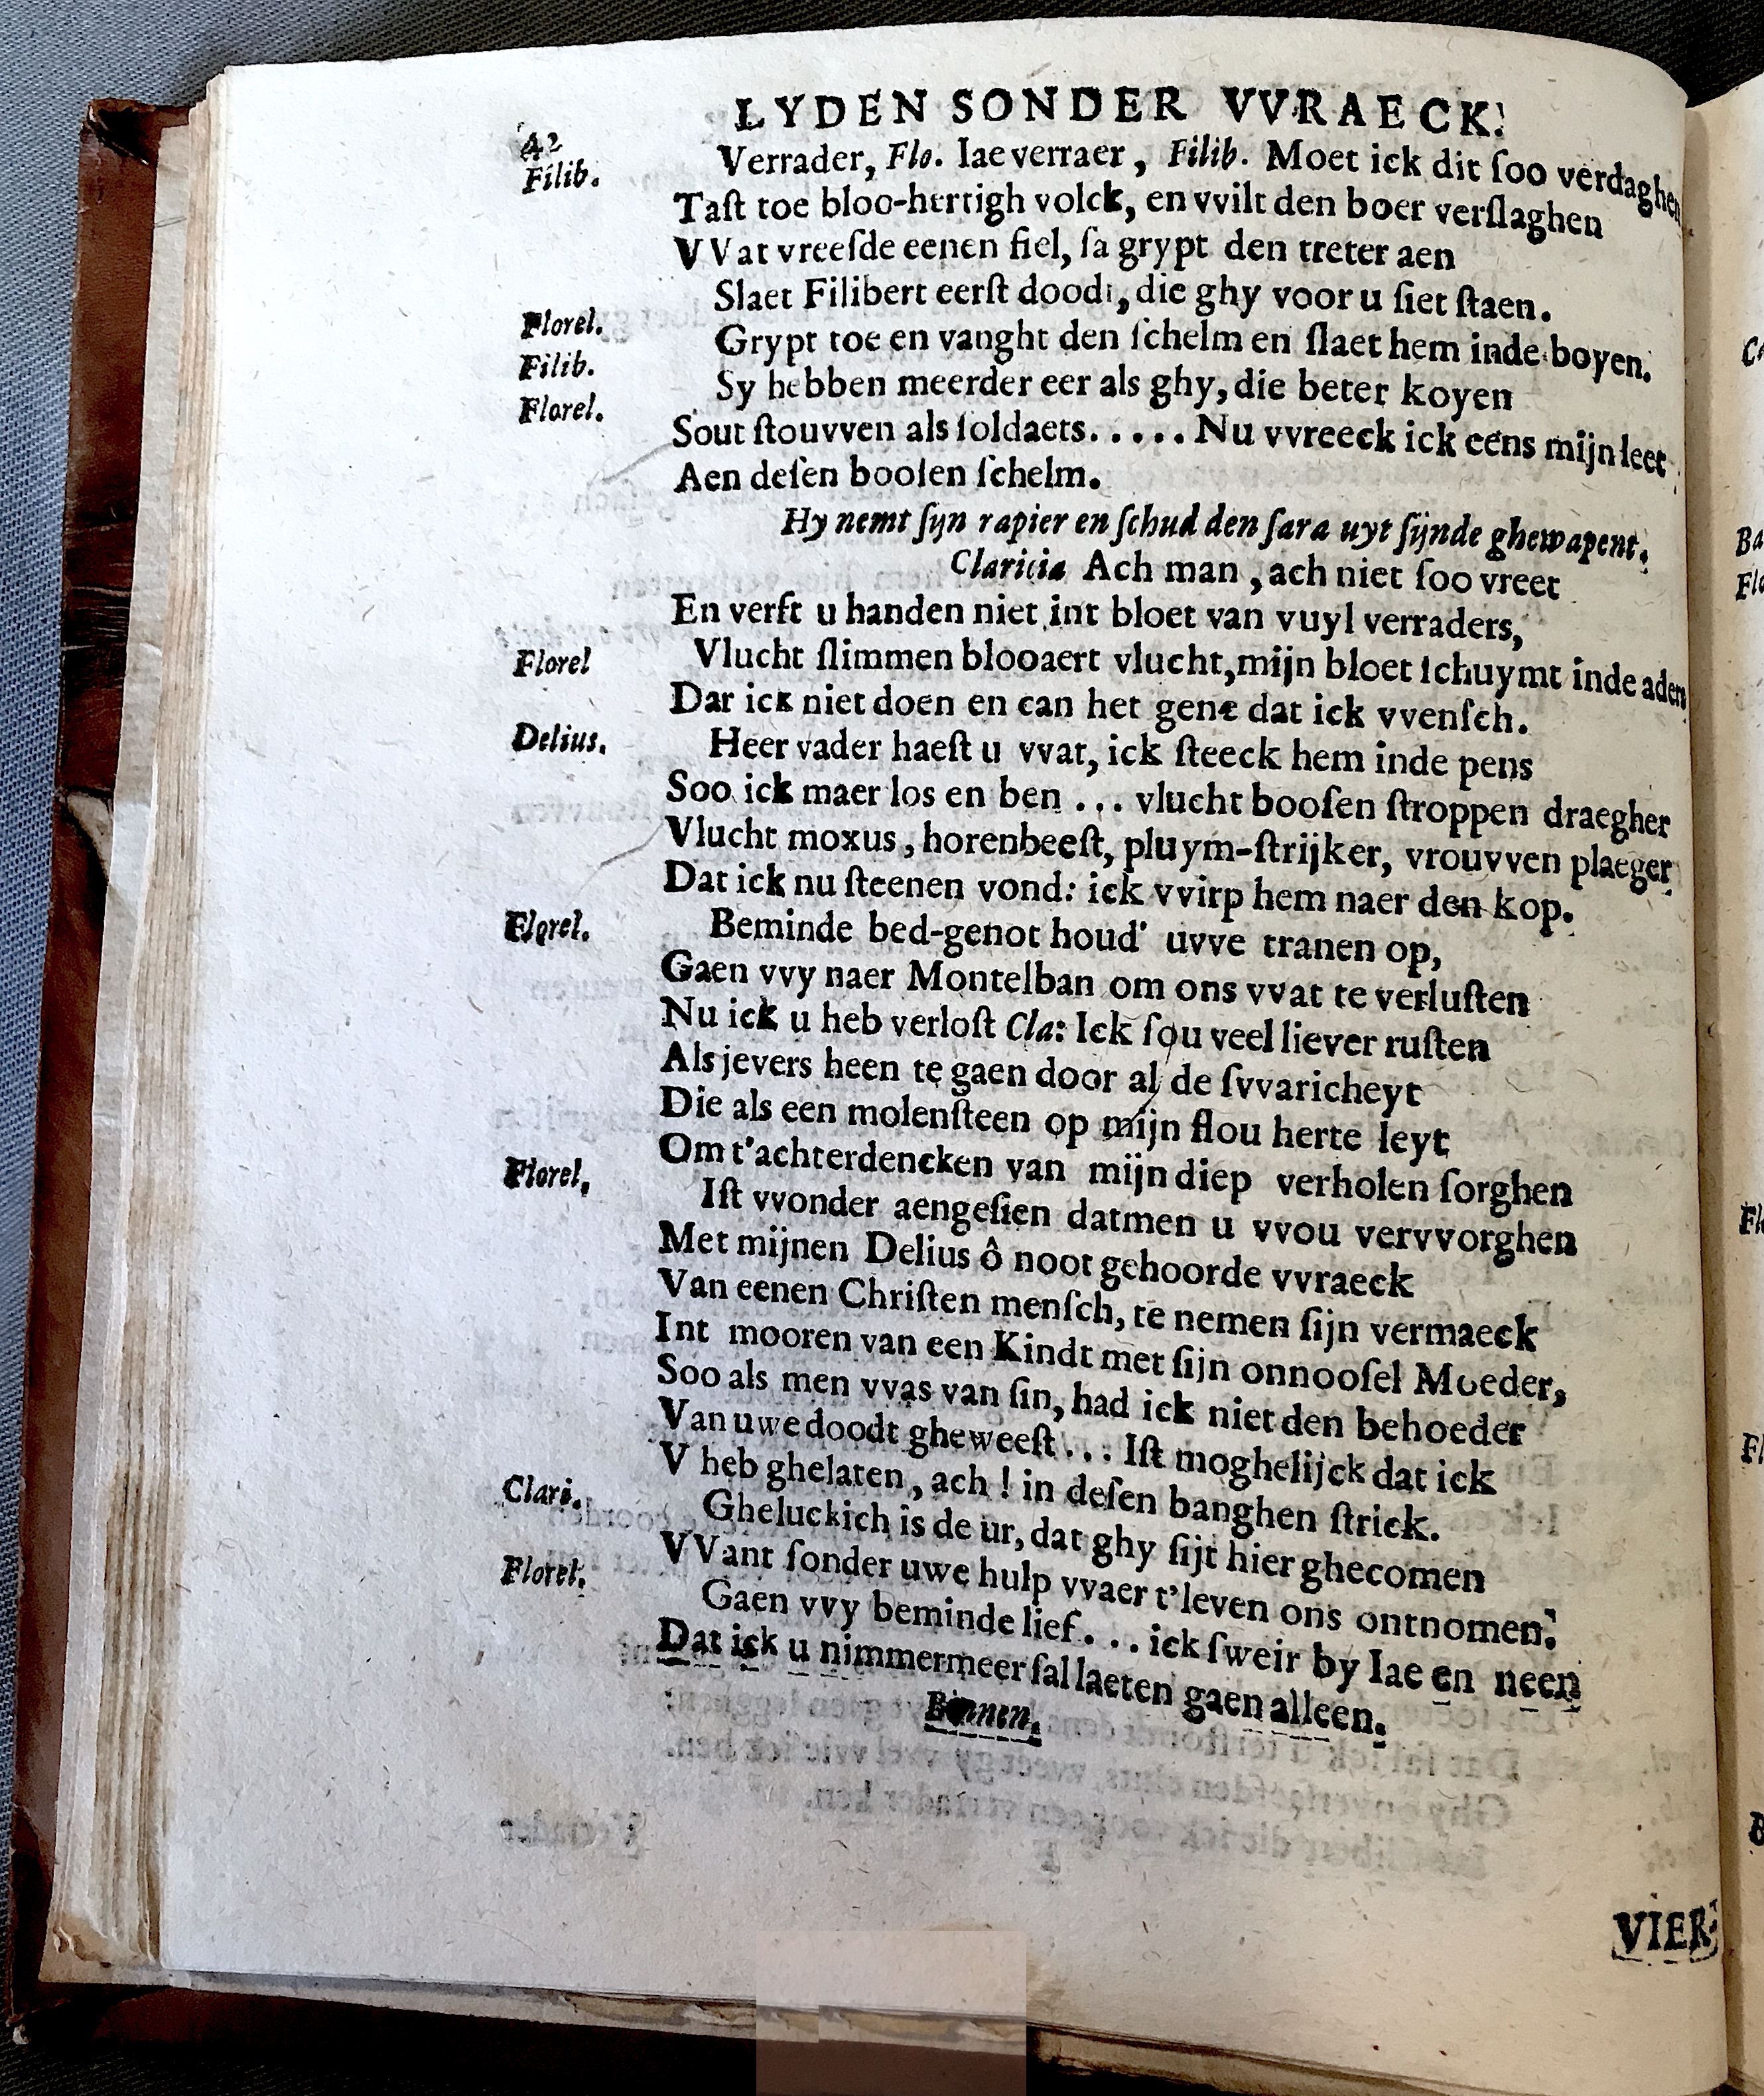 LYDEN SONDER VVRAECK.
42
Filib. Verrader, Flo. Iae verraer, Filib. Moet ick dit ſoo verdaghen
Taſt toe bloo-hertigh volck, en vvilt den boer verſlaghen
VVat vreeſde eenen fiel, ſa grypt den treter aen
Slaet Filibert eerſt doodt, die ghy voor u ſiet ſtaen.
Florel. Grypt toe en vanght den ſchelm en ſlaet hem inde boyen.
Filib. Sy hebben meerder eer als ghy, die beter koyen
Florel. Sout ſtouvven als ſoldaets..... Nu vvreeck ick eens mijn leet
Aen deſen booſen ſchelm.
Hy nemt ſyn rapier en ſchud den ſara uyt ſijnde ghewapent.
Claricia Ach man, ach niet ſoo vreet
En verft u handen niet int bloet van vuyl verraders,
Florel Vlucht ſlimmen blooaert vlucht, mijn bloet ſchuymt inde aders
Dar ick niet doen en can het gene dat ick vvenſch.
Delius. Heer vader haeſt u vvat, ick ſteeck hem inde pens
Soo ick maer los en ben ... vlucht booſen ſtroppen draegher
Vlucht moxus, horenbeeſt, pluym-ſtrijker, vrouvven plaeger
Dat ick nu ſteenen vond: ick vvirp hem naer den kop.
Florel. Beminde bed-genot houd' uvve tranen op,
Gaen vvy naer Montelban om ons vvat te verluſten
Nu ick u heb verloſt Cla: Ick ſou veel liever ruſten
Als jevers heen te gaen door al de ſvvaricheyt
Die als een molenſteen op mijn flou herte leyt
Om t'achterdencken van mijn diep verholen ſorghen
Florel. Iſt vvonder aengeſien datmen u vvou vervvorghen
Met mijnen Delius ô noot gehoorde vvraeck
Van eenen Chriſten menſch, te nemen ſijn vermaeck
Int mooren van een Kindt met ſijn onnooſel Moeder,
Soo als men vvas van ſin, had ick niet den behoeder
Van uwe doodt gheweeſt... Iſt moghelijck dat ick
V heb ghelaten, ach ! in deſen banghen ſtrick.
Clari. Gheluckich is de ur, dat ghy ſijt hier ghecomen
VVant ſonder uwe hulp vvaer t'leven ons ontnomen.
Florel. Gaen vvy beminde lief... ick ſweir by Iae en neen
Dat ick u nimmermeer ſal laeten gaen alleen.
Binnen.
VIER-